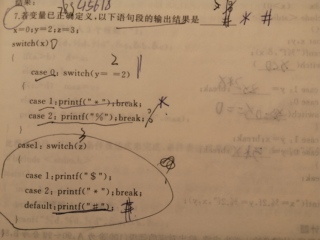 7.若变量已正确定义,以下语句段的输出结果是 # * #
x=0;y=2;z=3;
switch(x) 0
{ 2
case 0: switch(y==2)
{
case 1:printf("*");break; *
case 2:printf("%");break;
}
case1: switch(z)
{
case 1:printf("$");
case 2:printf("*");break;
default:printf("#"); #